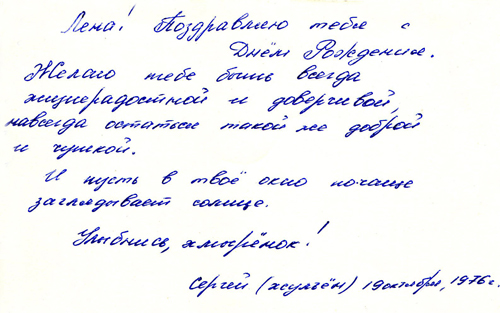 Лена! Поздравляю тебя с
Днём Рождения.
Желаю тебе быть всегда
жизнерадостной и доверчивой,
навсегда остаться такой же доброй
и чуткой.
И пусть в твоё окно почаще
заглядывает солнце.
Улыбнись, хмурёнок!
Сергей 19 октября, 1976 г.